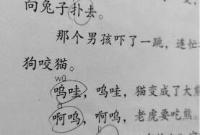 向兔子扑去。
那个男孩吓了一跳，连忙
狗咬猫。
wū
呜哇，呜哇，猫变成了大熊
ā
啊呜，啊呜，老虎要吃熊。